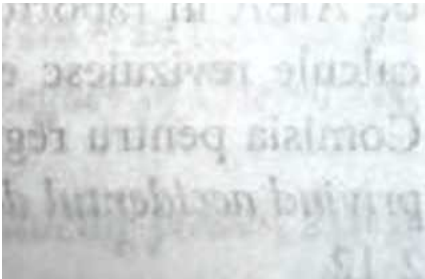 de AIEA în raport
calcule revizuiesc e
Comisia pentru reg
privind accidentul d